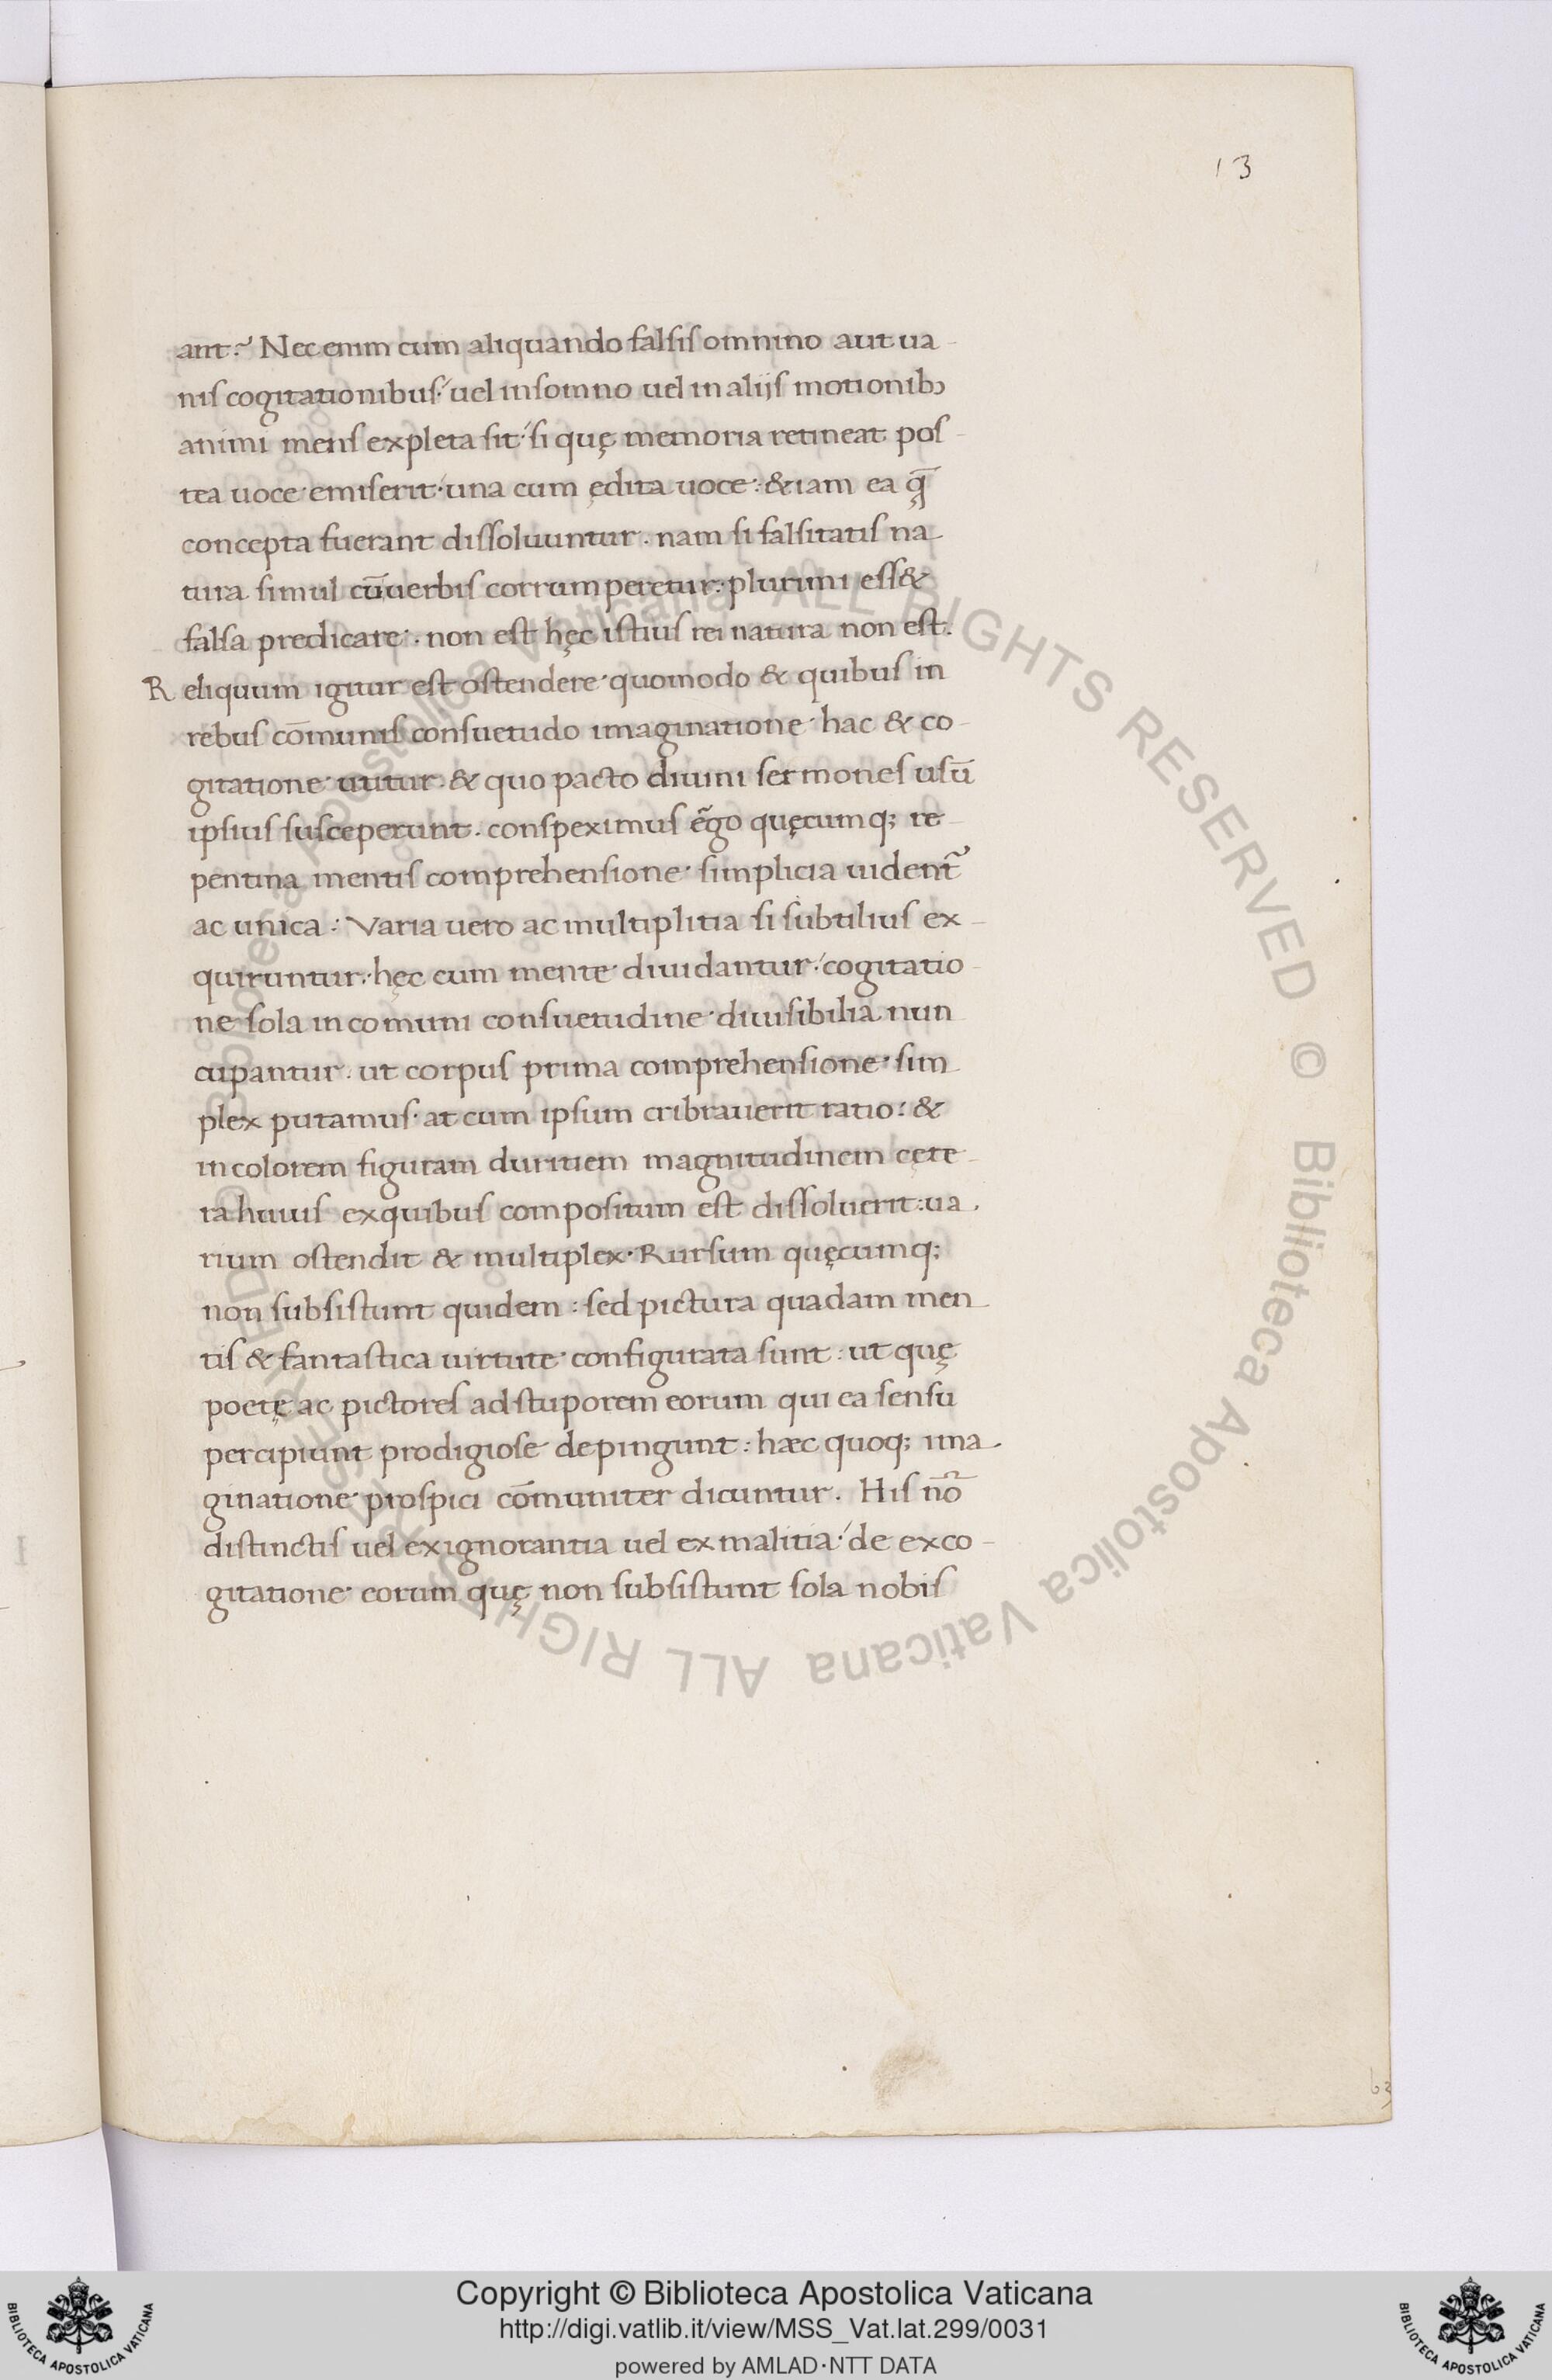 13
ant? Nec enim cum aliquando falsis omnino aut ua-
nis cogitationibus: uel in somno uel in alijs motionibꝫ
animi mens expleta sit: si quę memoria retineat pos-
tea uoce emiserit: una cum ędita uoce: &iam ea q̨̄
concepta fuerant dissoluuntur. nam si falsitatis na-
tura simul cū uerbis corrumperetur: plurimi ess&
falsa predicare. non est hęc istius rei natura non est.
Reliquum igitur est ostendere quomodo & quibus in
rebus cōmunis consuetudo imaginatione hac & co-
gitatione utitur. & quo pacto diuini sermones usū
ipsius susceperunt. conspeximus erg̃o quęcumq; re-
pentina mentis comprehensione simplicia uident᷑
ac unica: Varia uero ac multiplitia si subtilius ex-
quiruntur: hęc cum mente diuidantur: cogitatio-
ne sola in comuni consuetudine diuisibilia nun
cupantur. ut corpus prima comprehensione sim-
plex putamus. at cum ipsum cribrauerit ratio: &
in colorem figuram duritiem magnitudinem cęte-
ra huius ex quibus compositum est dissoluerit: ua.
rium ostendit & multiplex. Rursum quęcumq;
non subsistunt quidem: sed pictura quadam men-
tis & fantastica uirtute configurata sunt: ut quę
poetę ac pictores ad stuporem eorum qui ea sensu
percipiunt prodigiose depingunt: hæc quoq; ima-
ginatione prospici cōmuniter dicuntur. His nō
distinctis uel ex ignorantia uel ex malitia: de exco-
gitatione eorum quę non subsistunt sola nobis
Biblioteca Apostolica Vaticana ALL RIGHTS RESERVED ©
Biblioteca Apostolica Vaticana ALL RIGHTS RESERVED ©
Copyright © Biblioteca Apostolica Vaticana
http://digi.vatlib.it/view/MSS_Vat.lat.299/0031
powered by AMLAD·NTT DATA
BIBLIOTECA APOSTOLICA VATICANA
BIBLIOTECA APOSTOLICA VATICANA